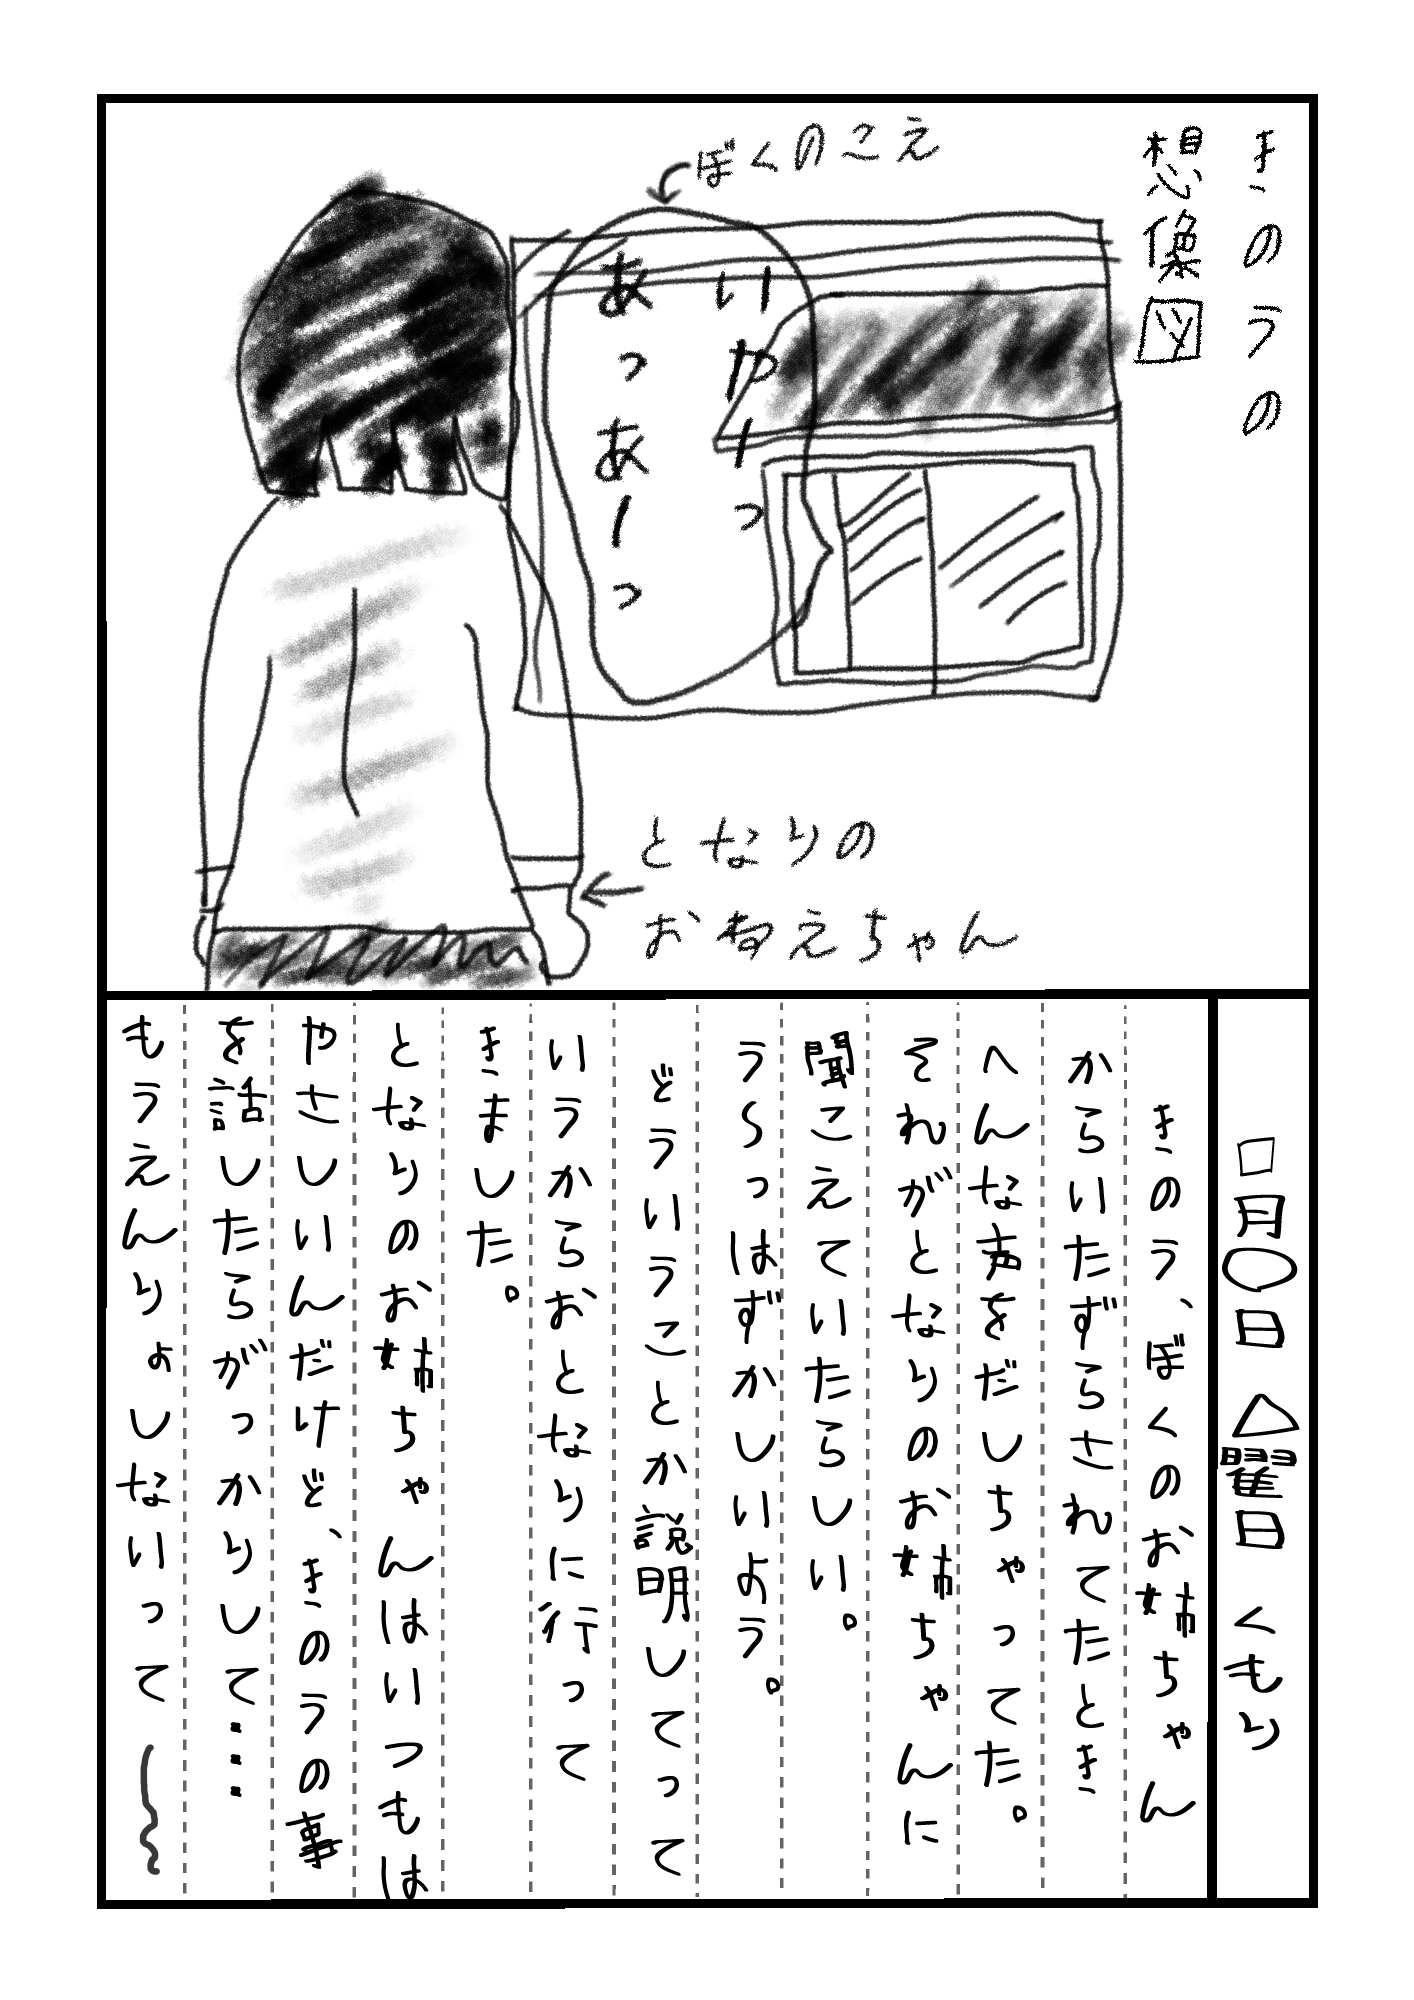 きのうの
想像図
ぼくのこえ
いやーっ
あっあーっ
となりの
おねえちゃん
□月〇日 △曜日 くもり
きのう、ぼくのお姉ちゃん
からいたずらされてたとき
へんな声をだしちゃってた。
それがとなりのお姉ちゃんに
聞こえていたらしい。
う～っはずかしいよう。
どういうことか説明してって
いうからおとなりに行って
きました。
となりのお姉ちゃんはいつもは
やさしいんだけど、きのうの事
を話したらがっかりして…
もうえんりょしないって〜